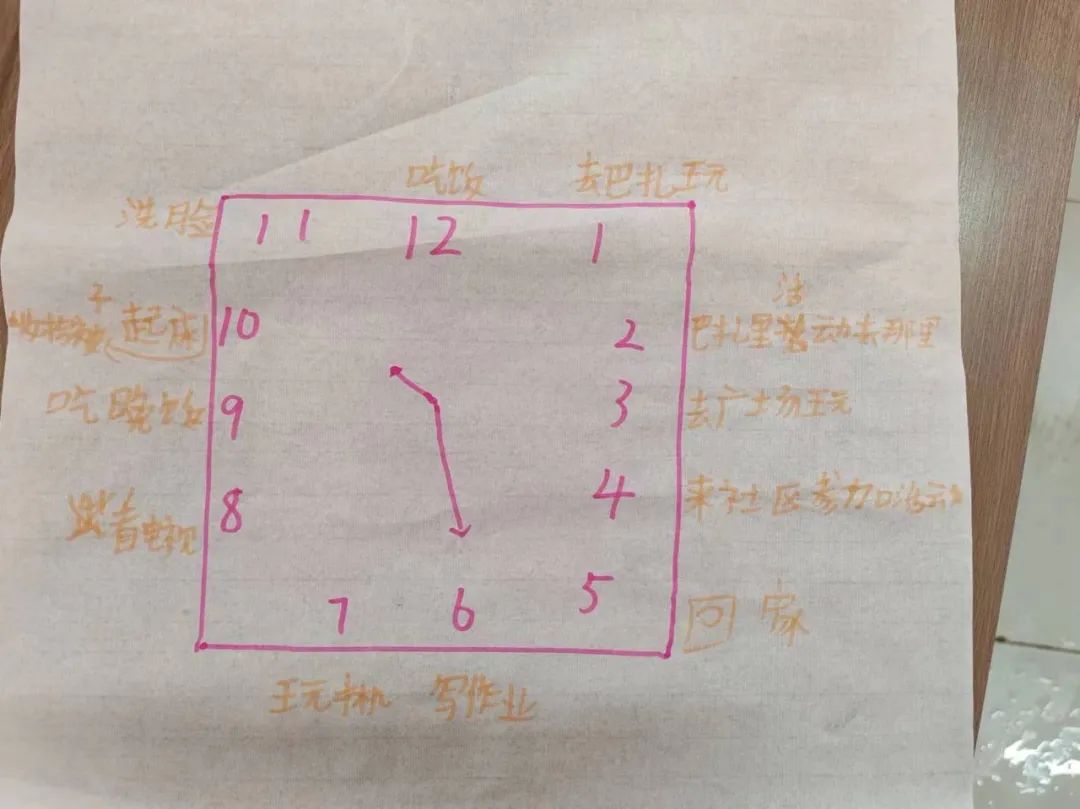 吃饭 去巴扎玩
洗脸
11 12 1
子
活
起床 10 2 巴扎里 动去那里
吃晚饭 9 3 去广场玩
8 4 来社区参加活动
看电视
7 6 5 回家
玩手机 写作业